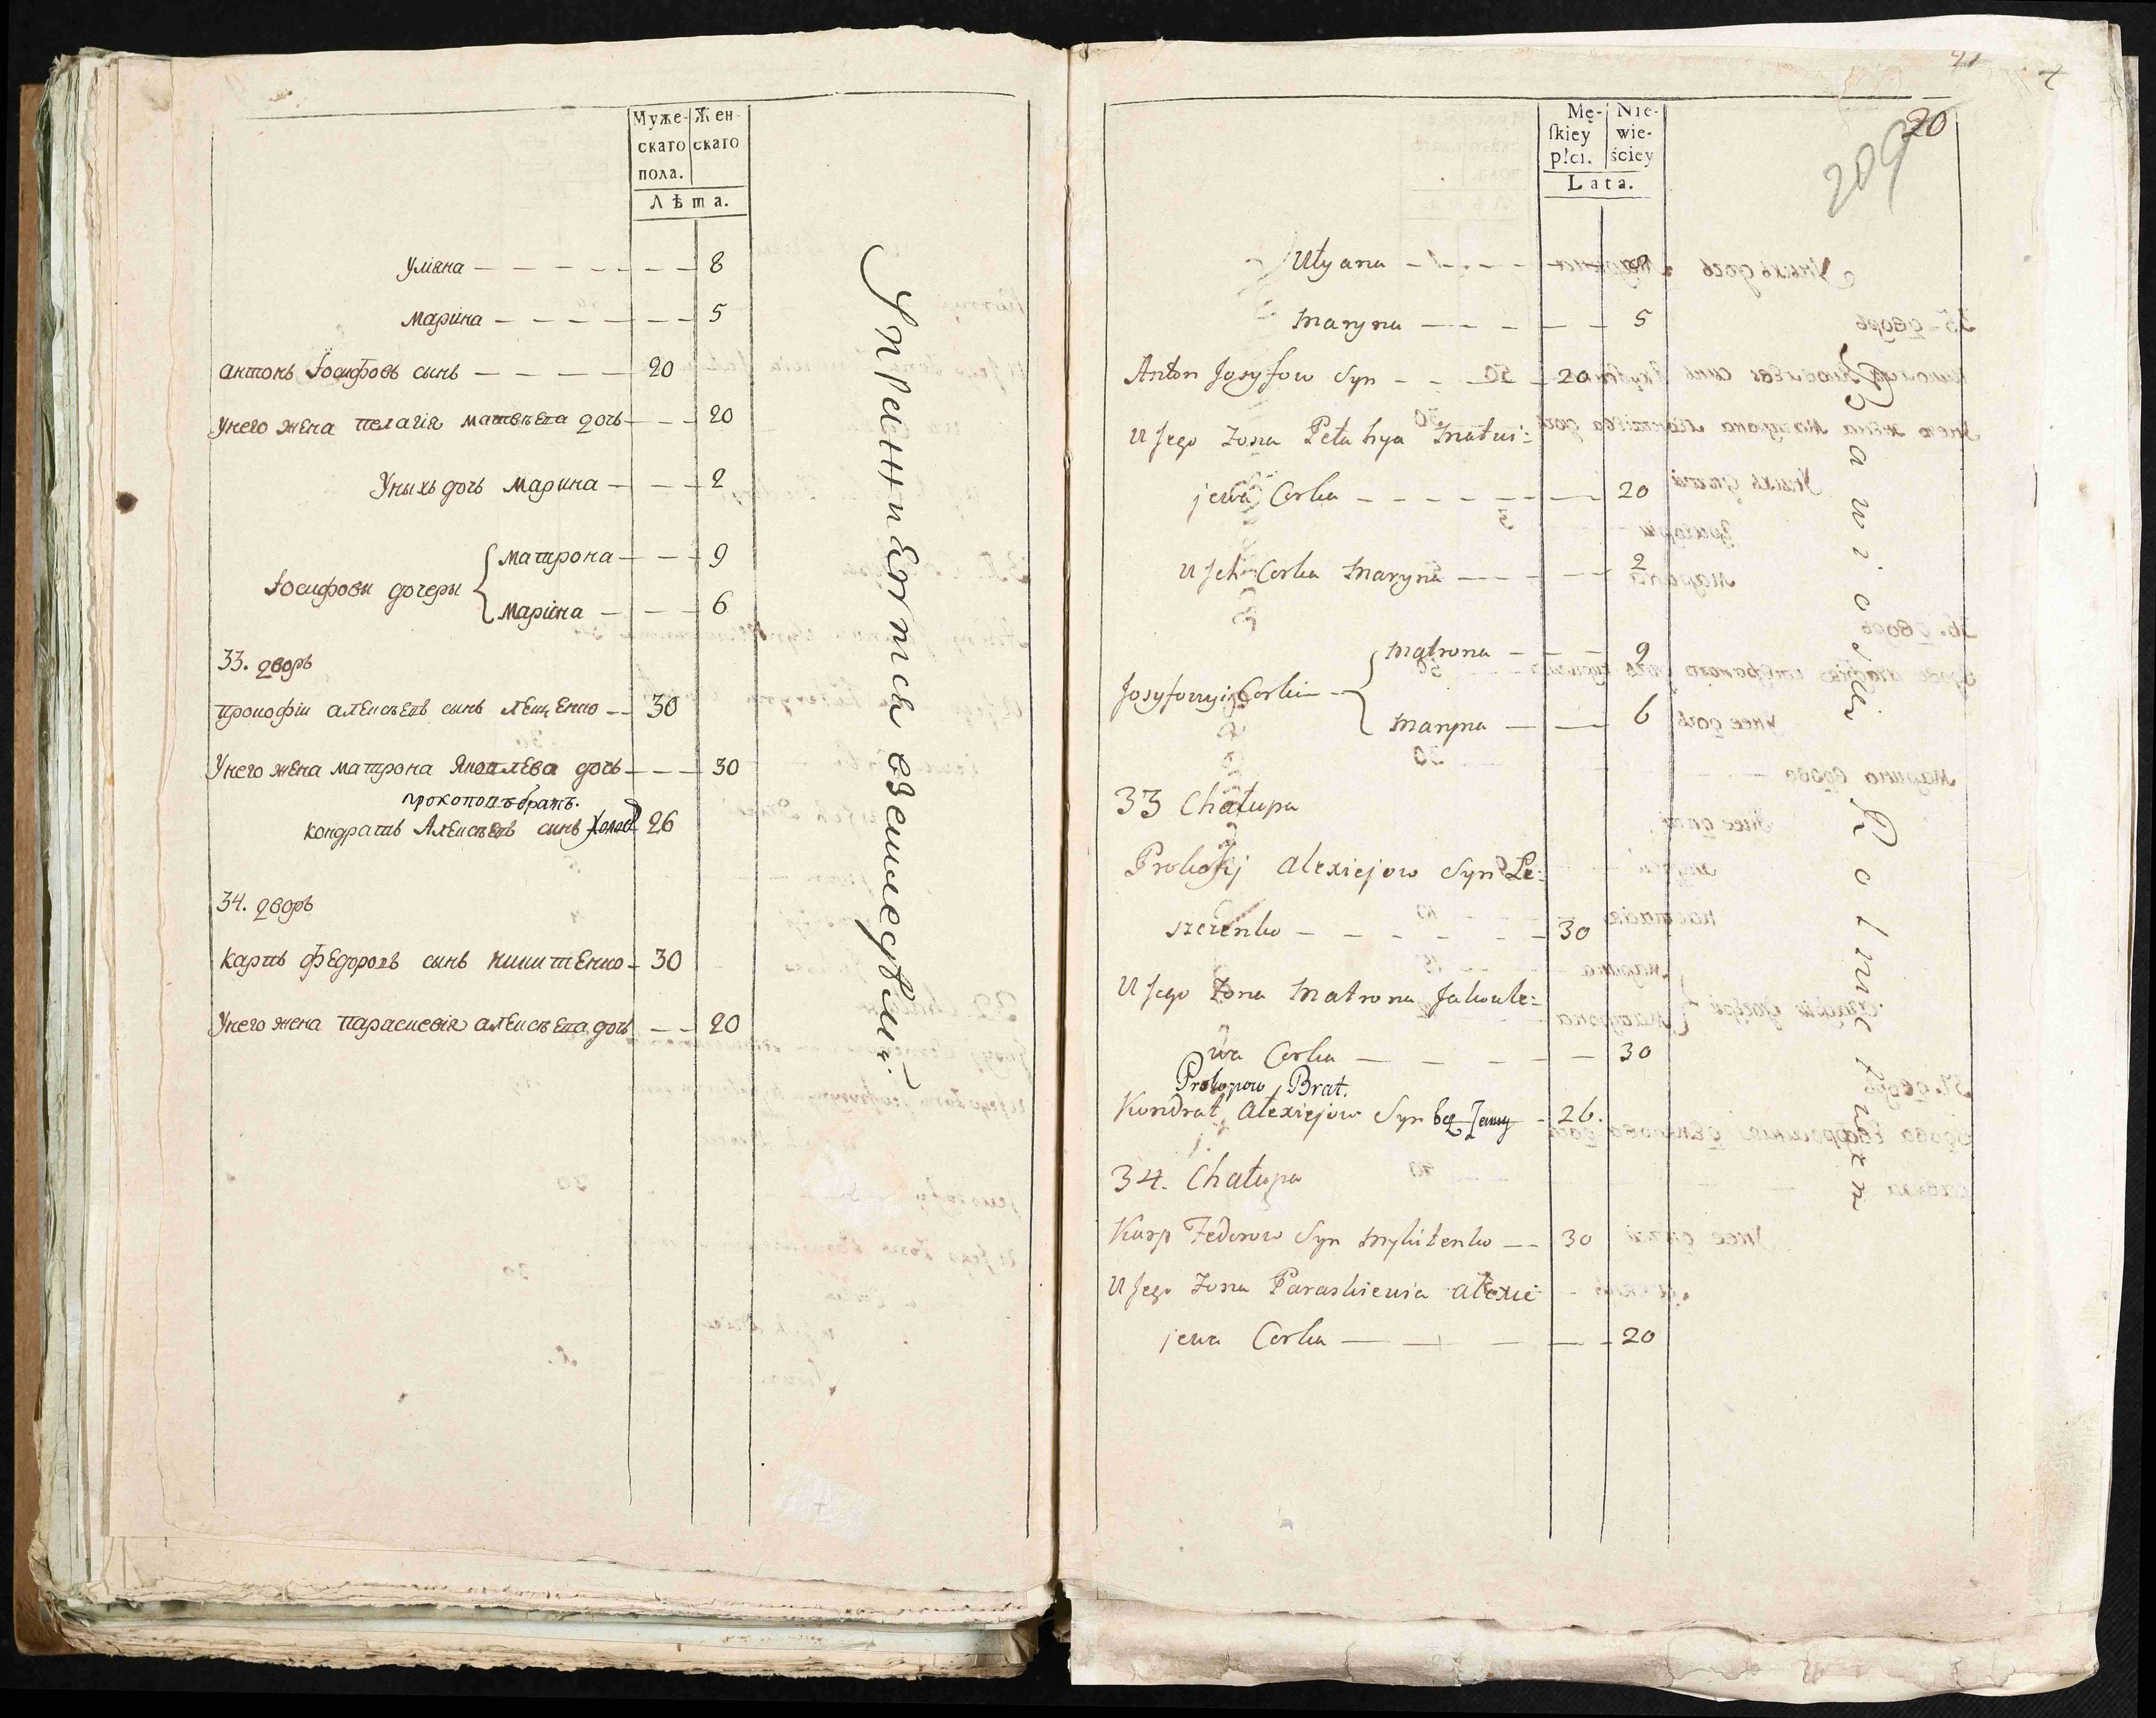 Муже- Жен-
скаго скаго
пола.
Лѣта.
Уліяна — — — — — — 8
Маріна — — — — — — 5
Антонъ Іосифовъ сынъ — — — — 20
Унего жена Пелагія Матвѣева дочь — — 20
Унихъ дочь Марина — — 2
Іосифовы дочеры
Матрона — — 9
Маріна — — 6
33. дворъ
Прокофіи Алексѣевъ сынъ Лещенко — 30
Унего жена Матрона Яковлева дочь — — 30
Прокоповъ братъ.
Кондратъ Алексѣевъ сынъ холост 26
34. дворъ
Карпъ Федоровъ сынъ Никитенко — 30
Унего жена Параскевія Алексѣева дочь — — 20
Упражняются вземледѣліи.
20
209
Mę- Nie-
ſkiey wie-
płci. ściey
Lata.
Ulyana — — — — 8
Maryna — — — — — 5
Anton Josyfow Syn — — — 20
U Jego Żona Pelahya Matwi=
jewa Corka — — — — — — 20
U Jch Corka Maryna — — — — 2
Josyfowyi Corki —
Matrona — — — 9
Maryna — — 6
33 Chałupa
Prokofij Alexiejow Syn Le=
szczenko — — — — — — 30
U Jego Żona Matrona Jakowle=
wa Corka — — — — — 30
Prokopow Brat.
Kondrat Alexiejow Syn bez Żenny — 26.
34. Chałupa
Karp Fedorow Syn Mykitenko — — 30
U Jego Żona Paraskiewia Alexie
jewa Corka — — — — — 20
Rolnictwem